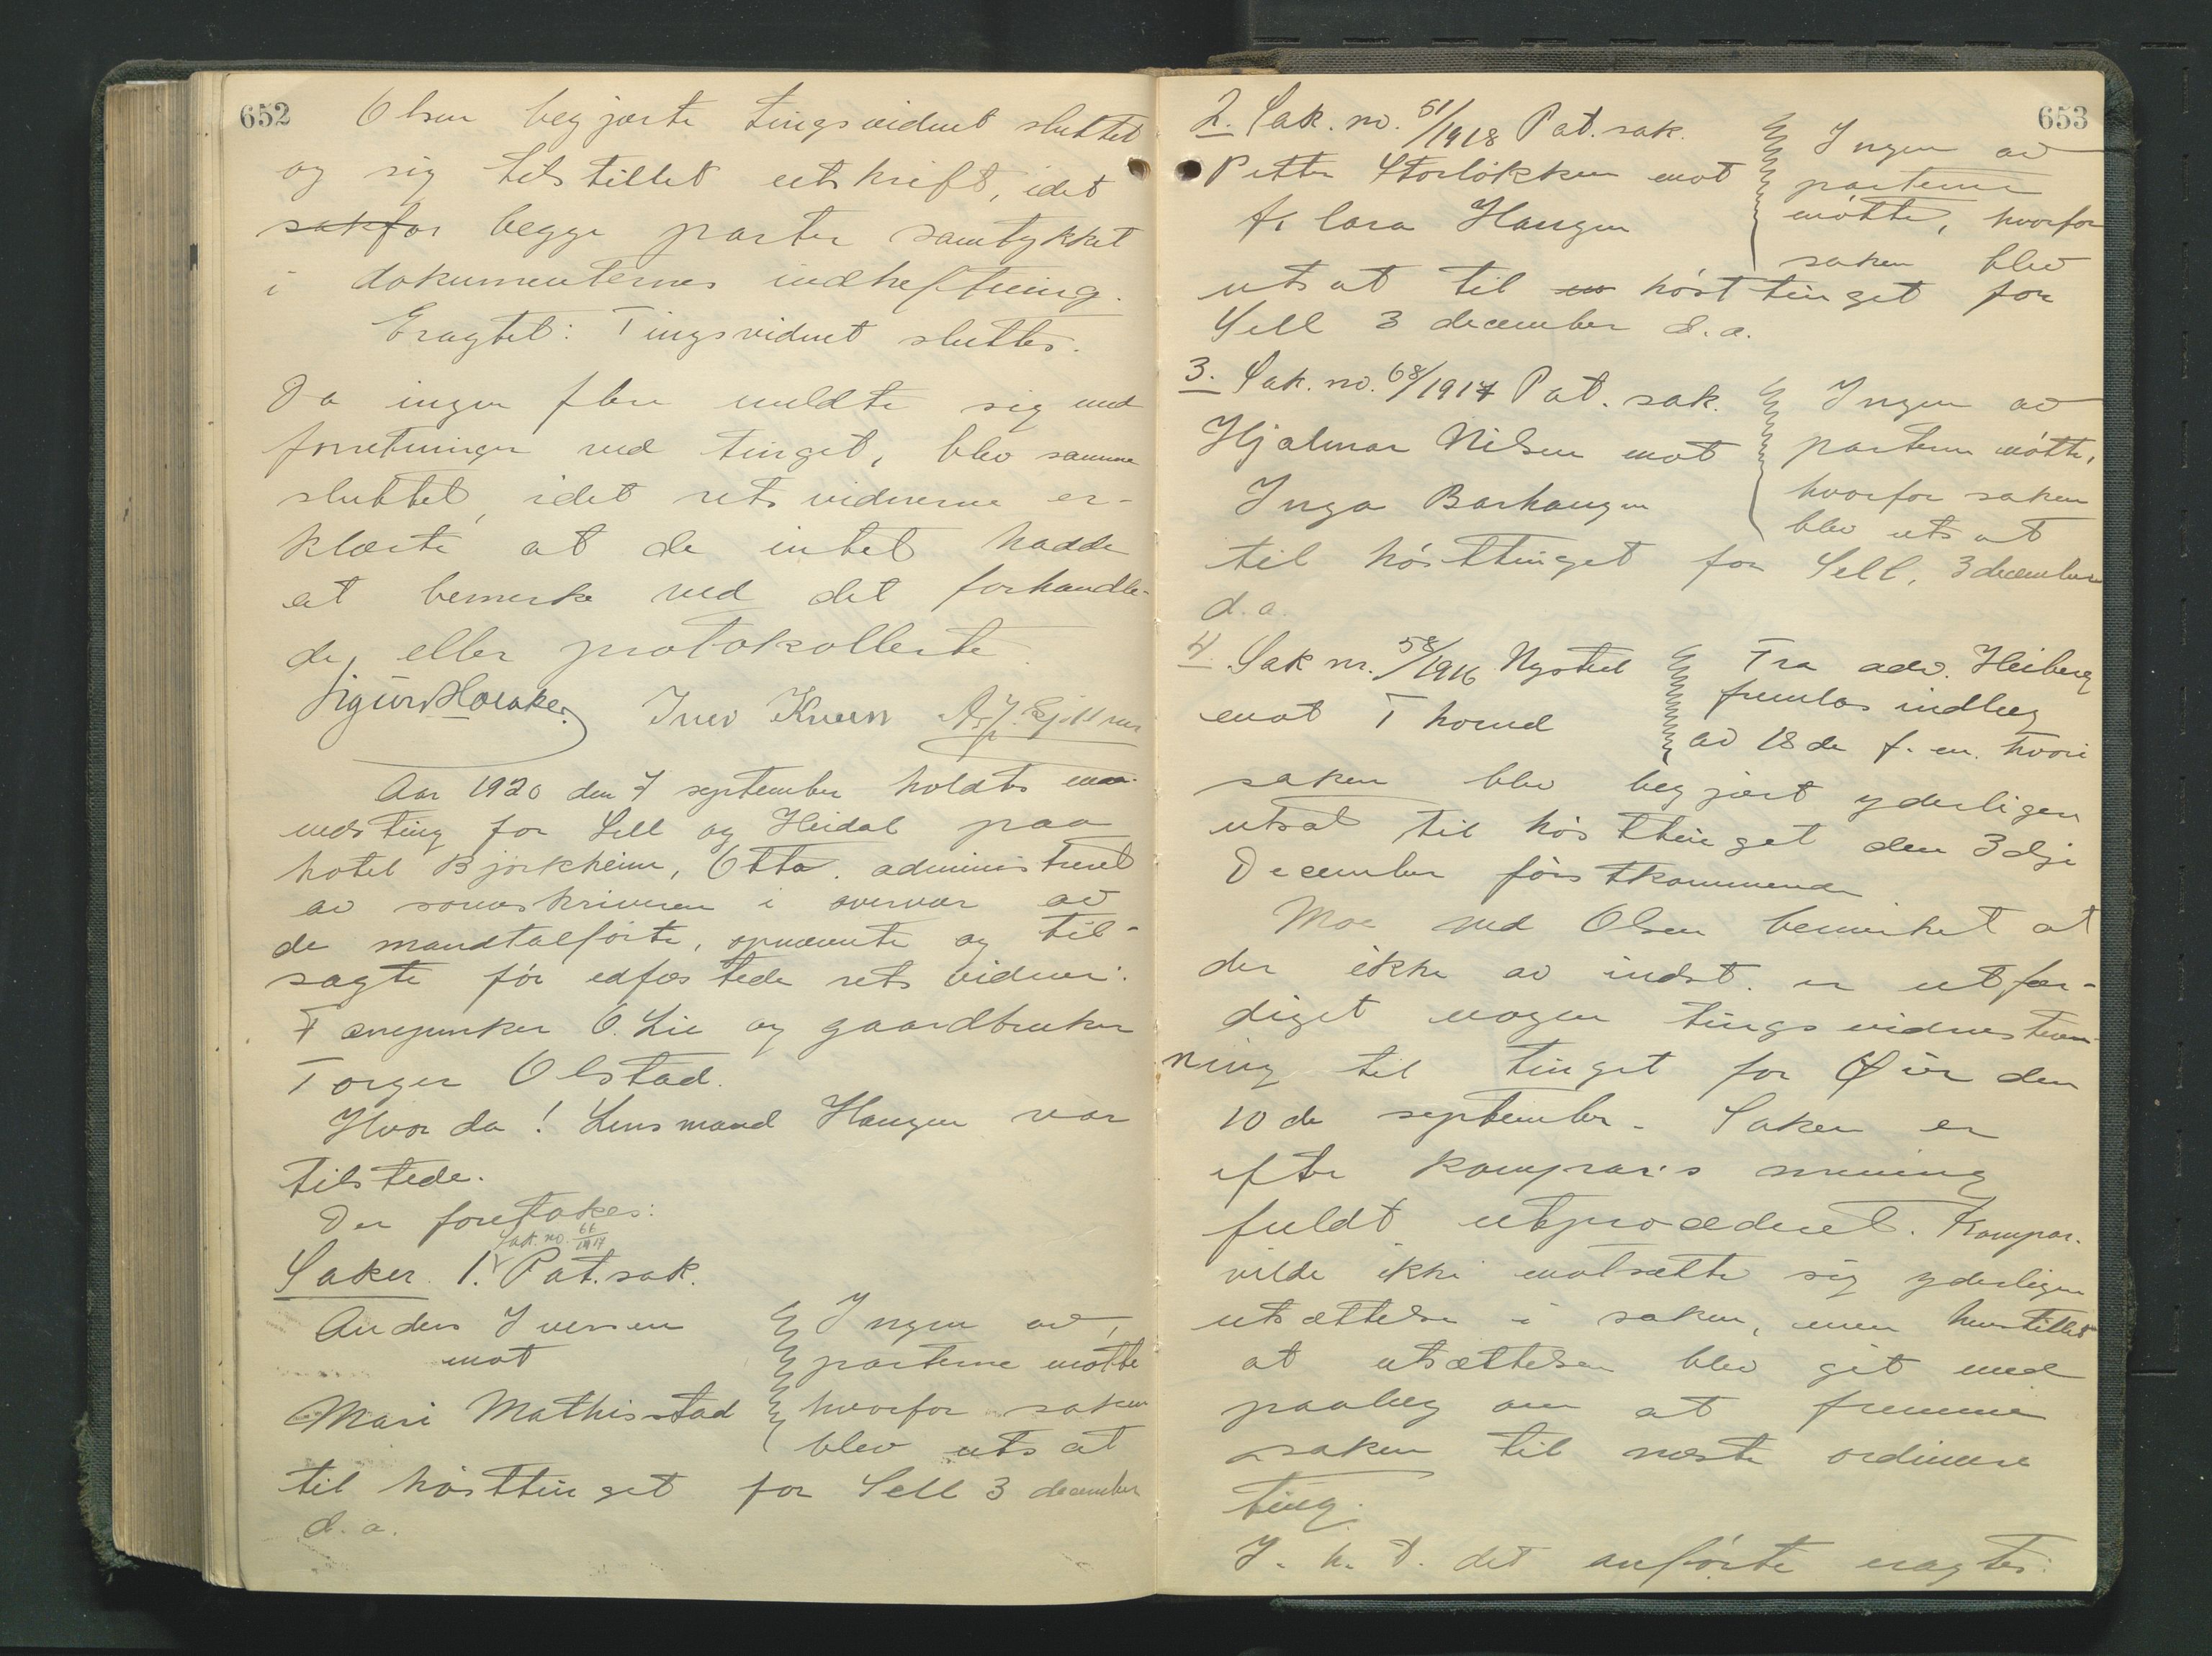 652
Olsen begjærte tingsvidnet sluttet
og sig tilstillet utskrift, idet
sakfor begge parter samtykket
i dokumenternes indheftning.
Eragtet: Tingsvidnet sluttes.
Da ingen flere meldte sig med
forretninger ved tinget, blev samme
sluttet, idet retsvidnerne er-
klærte at de intet hadde
at bemerke ved det forhandle-
de, eller protokollerte.
Iver Kveen
Aar 1920 den 7 september holdtes maa-
nedsting for Sell og Heidal paa
hotel Bjørkheim, Otta. administreret
av sorenskriveren i overvær av
de mandtalførte, opnævnte og til-
sagte før edfæstede retsvidner:
Fanejunker O. Lie og gaardbruker
Torger Olstad.
Hvor da! Lensmand Haugen var
tilstede.
Der foretakes:
Sak. no. 66/1919
Saker. 1. Pat. sak.
Anders Iversen
mot
Mari Mathisstad
Ingen av
parterne møtte
hvorfor saken
blev utsat
til høsttinget for Sell 3 december
d. a.
653
2. Sak. no. 51/1918 Pat. sak.
Petter Storløkken mot
Klara Haugen
Ingen av
parterne
møtte, hvorfor
saken blev
utsat til høsttinget for
Sell 3 december d. a.
3. Sak. no. 68/1917 Pat. sak.
Hjalmar Nilsen mot
Inga Barhaugen
Ingen av
parterne møtte,
hvorfor saken
blev utsat
til høsttinget for Sell, 3 december
d. a.
4. Sak nr. 58/1916 Nystuel
mot Thorud
Fra adv. Heiberg
fremlas indlæg
av 18de f. m. hvori
saken blev begjært yderligere
utsat til høsttinget den 3dje
December førstkommende
Moe ved Olsen bemerket at
der ikke av indst. er utfær-
diget nogen tingsvidnestevn-
ning til tinget for Øier den
10de september. Saken er
efter kompar's mening
fuldt utprocederet. Kompar.
vilde ikke motsætte sig yderligere
utsættelse i saken, men henstillet
at utsættelsen blev git med
paalæg om at fremme
saken til næste ordinære
ting.
I. h. t. det anførte eragtes: